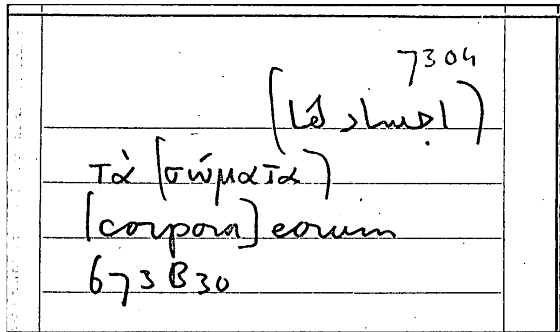 7304
(اجساد لها)
τὰ (σώματα)
[corpora] eorum
673 B 30